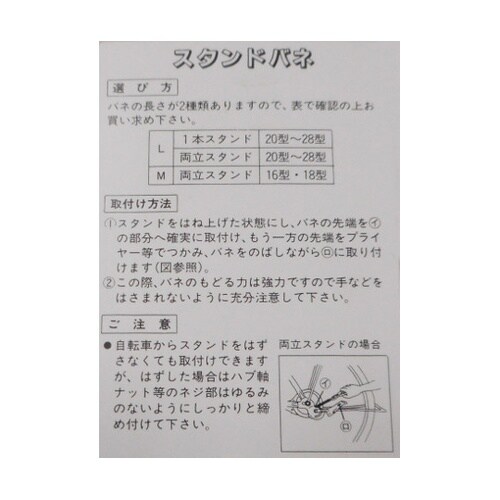 スタンドバネ
選び方
バネの長さが2種類ありますので、表で確認の上お
買い求め下さい。
L 1本スタンド 20型〜28型
両立スタンド 20型〜28型
M 両立スタンド 16型・18型
取付け方法
①スタンドをはね上げた状態にし、バネの先端を㋑
の部分へ確実に取付け、もう一方の先端をプライ
ヤー等でつかみ、バネをのばしながら㋺に取り付
けます(図参照)。
②この際、バネのもどる力は強力ですので手などを
はさまれないように充分注意して下さい。
ご注意
●自転車からスタンドをはず
さなくても取付けできます
が、はずした場合はハブ軸
ナット等のネジ部はゆるみ
のないようにしっかりと締
め付けて下さい。
両立スタンドの場合
㋑
㋺